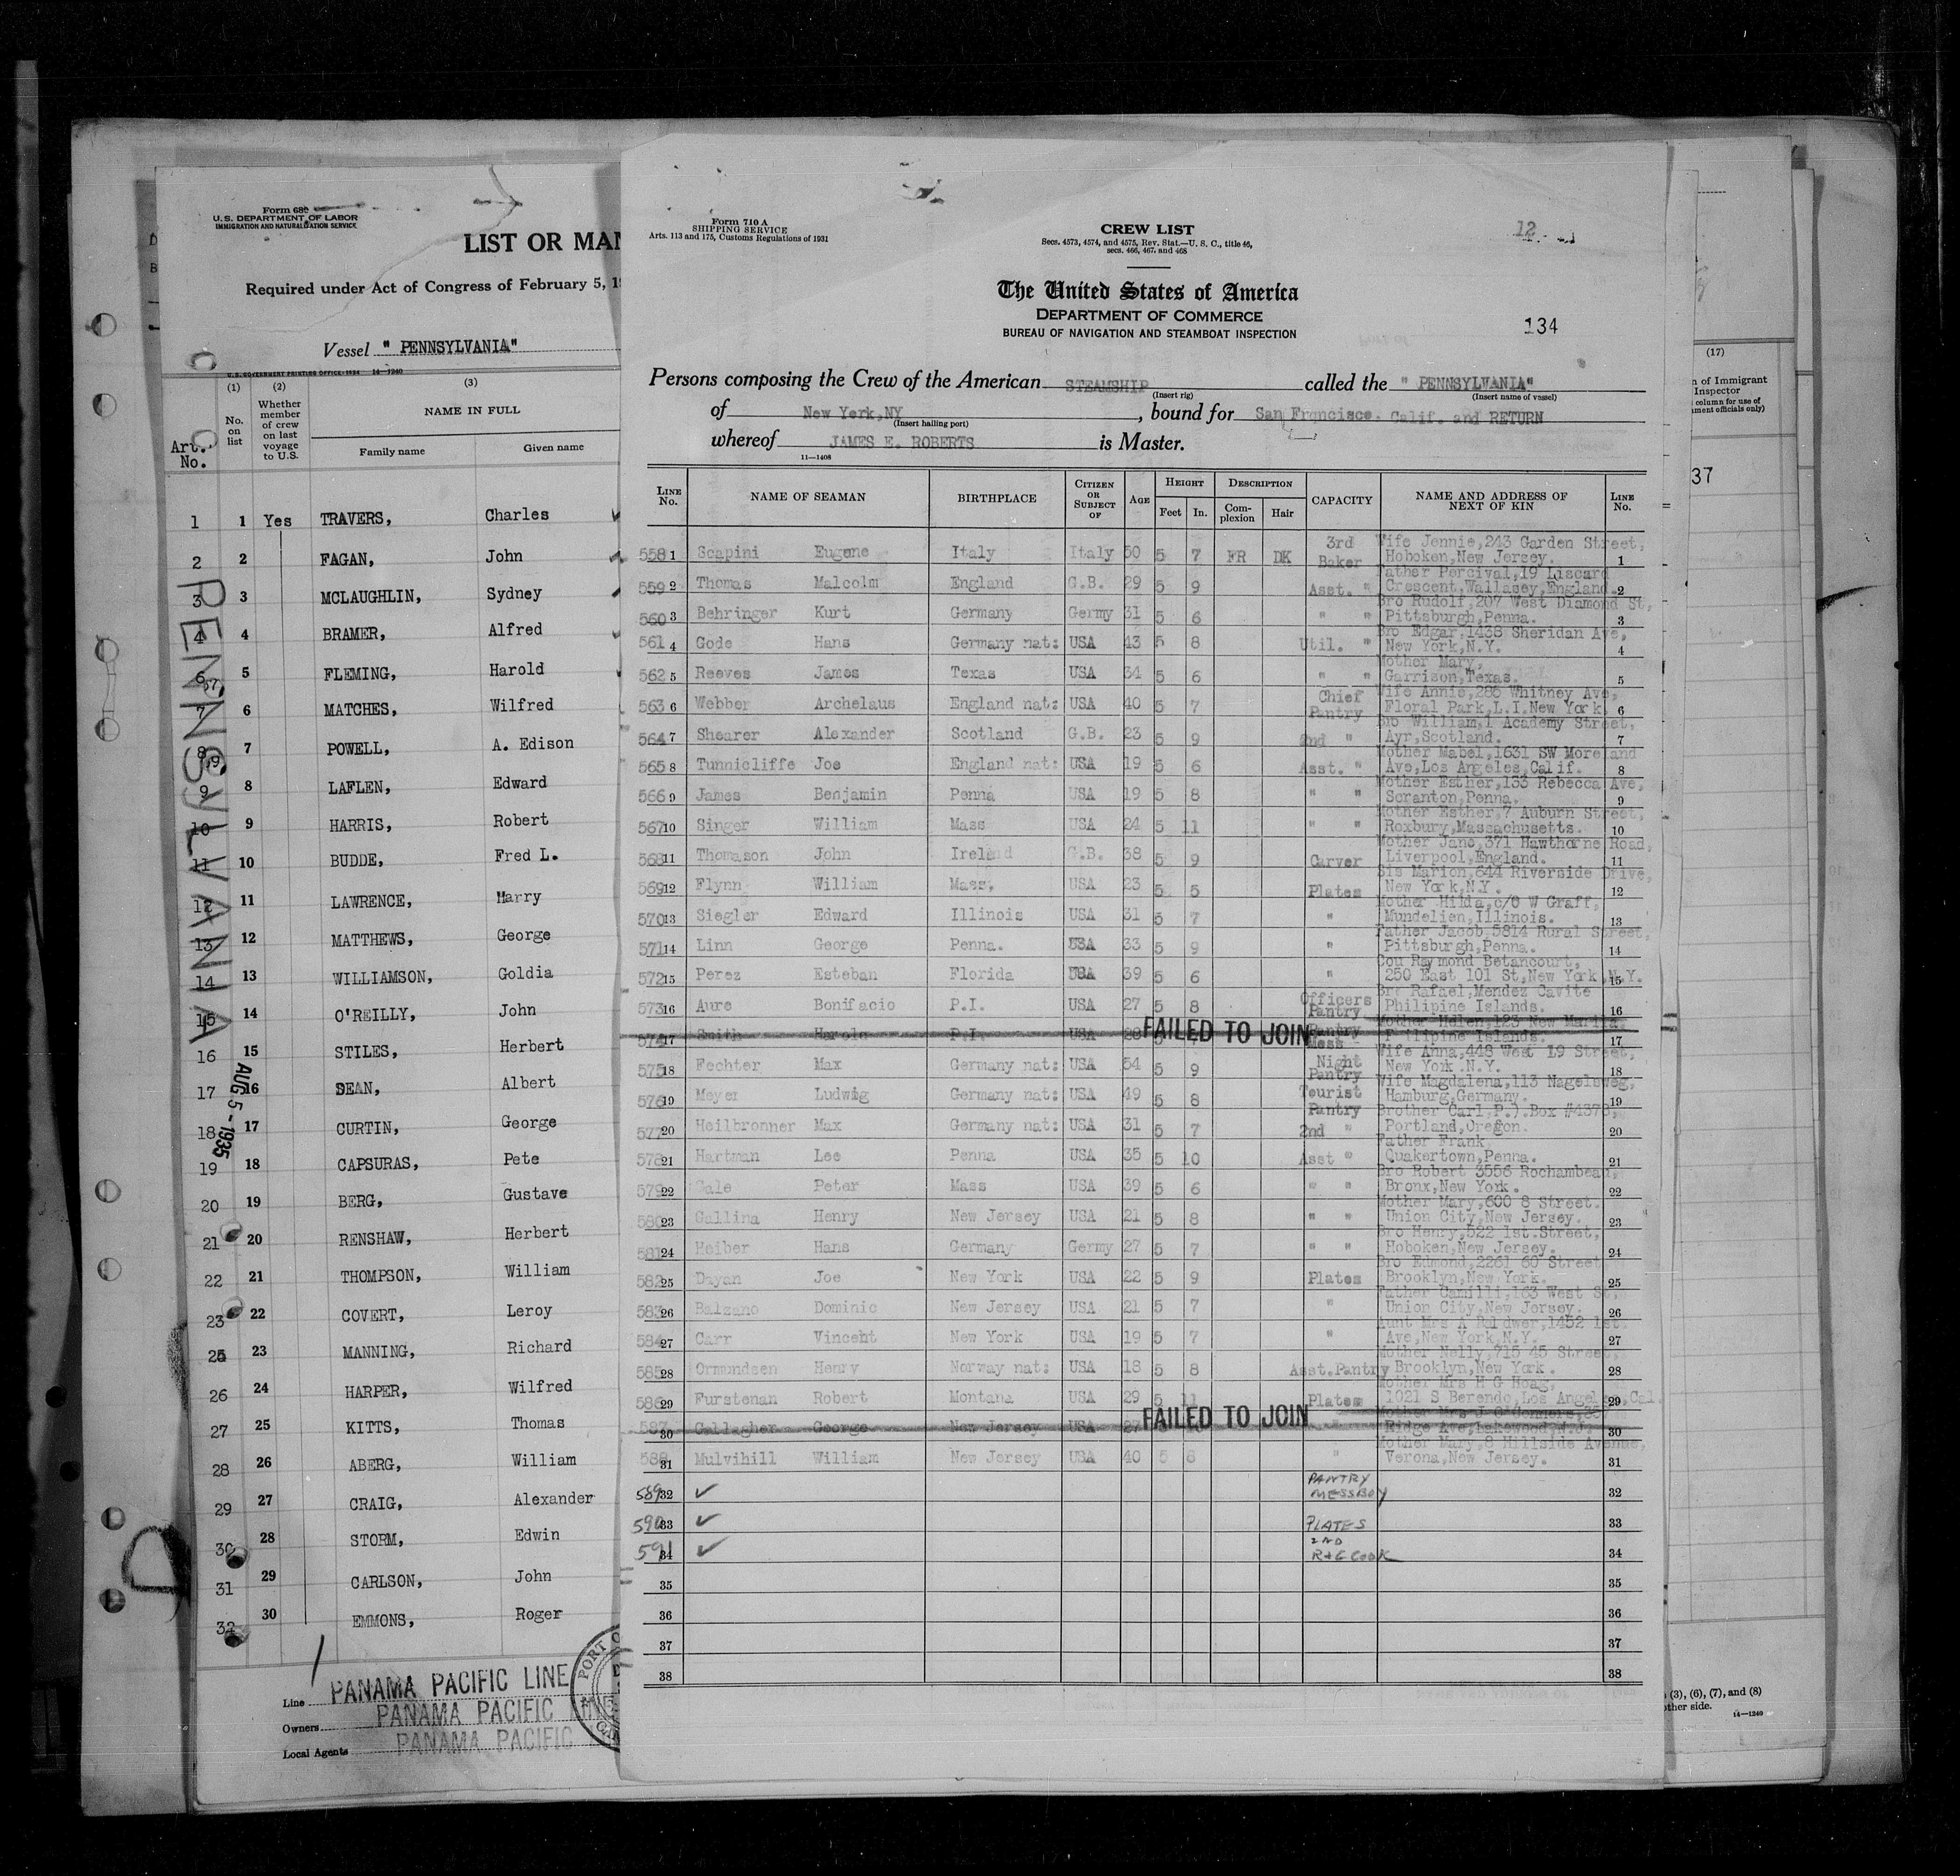 Form 680
U.S. DEPARTMENT OF LABOR
IMMIGRATION AND NATURALIZATION SERVICE
LIST OR MAN
Required under Act of Congress of February 5, 19
Vessel " PENNSYLVANIA"
U.S. GOVERNMENT PRINTING OFFICE: 1934 14—1240
(1) (2) (3)
Art. No. No. on list Whether member of crew on last voyage to U.S. NAME IN FULL
Family name Given name
1 1 Yes TRAVERS, Charles
2 2 FAGAN, John
3 3 MCLAUGHLIN, Sydney
4 4 BRAMER, Alfred
6 5 FLEMING, Harold
7 6 MATCHES, Wilfred
8 7 POWELL, A. Edison
9 8 LAFLEN, Edward
10 9 HARRIS, Robert
11 10 BUDDE, Fred L.
12 11 LAWRENCE, Harry
13 12 MATTHEWS, George
14 13 WILLIAMSON, Goldia
15 14 O'REILLY, John
16 15 STILES, Herbert
17 16 DEAN, Albert
18 17 CURTIN, George
19 18 CAPSURAS, Pete
20 19 BERG, Gustave
21 20 RENSHAW, Herbert
22 21 THOMPSON, William
23 22 COVERT, Leroy
25 23 MANNING, Richard
26 24 HARPER, Wilfred
27 25 KITTS, Thomas
28 26 ABERG, William
29 27 CRAIG, Alexander
30 28 STORM, Edwin
31 29 CARLSON, John
32 30 EMMONS, Roger
PENNSYLVANIA
AUG 5 - 1935
Line PANAMA PACIFIC LINE
Owners PANAMA PACIFIC LINE
Local Agents PANAMA PACIFIC
PORT O
Form 710 A
SHIPPING SERVICE
Arts. 113 and 175, Customs Regulations of 1931
CREW LIST
Secs. 4573, 4574, and 4575, Rev. Stat.—U. S. C., title 46,
secs. 466, 467, and 468
12
The United States of America
DEPARTMENT OF COMMERCE
BUREAU OF NAVIGATION AND STEAMBOAT INSPECTION
134
Persons composing the Crew of the American STEAMSHIP called the " PENNSYLVANIA"
(Insert rig) (Insert name of vessel)
of New York,NY , bound for San Francisco. Calif. and RETURN
(Insert hailing port)
whereof JAMES E. ROBERTS is Master.
11—1408
LINE No. NAME OF SEAMAN BIRTHPLACE CITIZEN OR SUBJECT OF AGE HEIGHT Feet In. DESCRIPTION Complexion Hair CAPACITY NAME AND ADDRESS OF NEXT OF KIN LINE No.
558 1 Scapini Eugene Italy Italy 50 5 7 FR DK 3rd Baker Wife Jennie,243 Garden Street, Hoboken,New Jersey. 1
559 2 Thomas Malcolm England G.B. 29 5 9 Asst. " Father Percival,19 Liscard Crescent,Wallasey,England. 2
560 3 Behringer Kurt Germany Germy 31 5 6 " " Bro Rudolf,207 West Diamond St, Pittsburgh,Penna. 3
561 4 Gode Hans Germany nat: USA 43 5 8 Util. " Bro Edgar,1438 Sheridan Ave, New York,N.Y. 4
562 5 Reeves James Texas USA 34 5 6 " " Mother Mary, Garrison,Texas. 5
563 6 Webber Archelaus England nat: USA 40 5 7 Chief Pantry Wife Annie,286 Whitney Ave, Floral Park,L.I.New York 6
564 7 Shearer Alexander Scotland G.B. 23 5 9 2nd " Bro William,1 Academy Street, Ayr,Scotland. 7
565 8 Tunnicliffe Joe England nat: USA 19 5 6 Asst. " Mother Mabel,1631 SW Moreland Ave,Los Angeles,Calif. 8
566 9 James Benjamin Penna USA 19 5 8 " " Mother Esther,133 Rebecca Ave, Scranton,Penna. 9
567 10 Singer William Mass USA 24 5 11 " " Mother Esther,7 Auburn Street, Roxbury,Massachusetts. 10
568 11 Thomason John Ireland G.B. 38 5 9 Carver Mother Jane,371 Hawthorne Road, Liverpool,England. 11
569 12 Flynn William Mass, USA 23 5 5 Plates Sis Marion,644 Riverside Drive, New York,N.Y. 12
570 13 Siegler Edward Illinois USA 31 5 7 " Mother Hilda,c/o W Graff, Mundelien,Illinois. 13
571 14 Linn George Penna. USA 33 5 9 " Father Jacob,5814 Rural Street, Pittsburgh,Penna. 14
572 15 Perez Esteban Florida USA 39 5 6 " Cou Raymond Betancourt, 250 East 101 St,New York,N.Y. 15
573 16 Aure Bonifacio P.I. USA 27 5 8 Officers Pantry Bro Rafael,Mendez Cavite Philipine Islands. 16
574 17 Smith Harold P.I. USA 28 FAILED TO JOIN Pantry Mess Mother Helen,123 New Manila Philipine Islands. 17
575 18 Fechter Max Germany nat: USA 54 5 9 Night Pantry Wife Anna,448 West 19 Street, New York.N.Y. 18
576 19 Meyer Ludwig Germany nat: USA 49 5 8 Tourist Pantry Wife Magdalena,113 Nagelsweg, Hamburg,Germany. 19
577 20 Heilbronner Max Germany nat: USA 31 5 7 2nd " Brother Carl,P.O.Box #4378, Portland,Oregon. 20
578 21 Hartman Lee Penna USA 35 5 10 Asst " Father Frank, Quakertown,Penna. 21
579 22 Gale Peter Mass USA 39 5 6 " " Bro Robert 3556 Rochambeau, Bronx,New York. 22
580 23 Gallina Henry New Jersey USA 21 5 8 " " Mother Mary,600 8 Street. Union City,New Jersey. 23
581 24 Heiber Hans Germany Germy 27 5 7 " " Bro Henry,522 1st.Street, Hoboken,New Jersey. 24
582 25 Dayan Joe New York USA 22 5 9 Plates Bro Edmond,2261 60 Street Brooklyn,New York. 25
583 26 Balzano Dominic New Jersey USA 21 5 7 " Father Camilli,163 West St, Union City,New Jersey. 26
584 27 Carr Vincent New York USA 19 5 7 " Aunt Mrs A Baldwer,1452 1st. Ave,New York,N.Y. 27
585 28 Ormundsen Henry Norway nat: USA 18 5 8 Asst.Pantry Mother Nelly,715 45 Street Brooklyn,New York. 28
586 29 Furstenan Robert Montana USA 29 5 11 Plates Mother Mrs H G Hoag, 1021 S Berendo,Los Angeles,Cal. 29
587 30 Gallagher George New Jersey USA 27 FAILED TO JOIN " Mother Mrs J O'Donnell, Ridge Ave,Lakewood,N.J. 30
588 31 Mulvihill William New Jersey USA 40 5 8 " Mother Mary,8 Hillside Avenue, Verona,New Jersey. 31
589 32 ✓ PANTRY MESSBOY 32
590 33 ✓ PLATES 33
591 34 ✓ 2ND R+G COOK 34
35 35
36 36
37 37
38 38
(17)
n of Immigrant
Inspector
column for use of
ment officials only)
37
(3), (6), (7), and (8)
other side.
14—1240